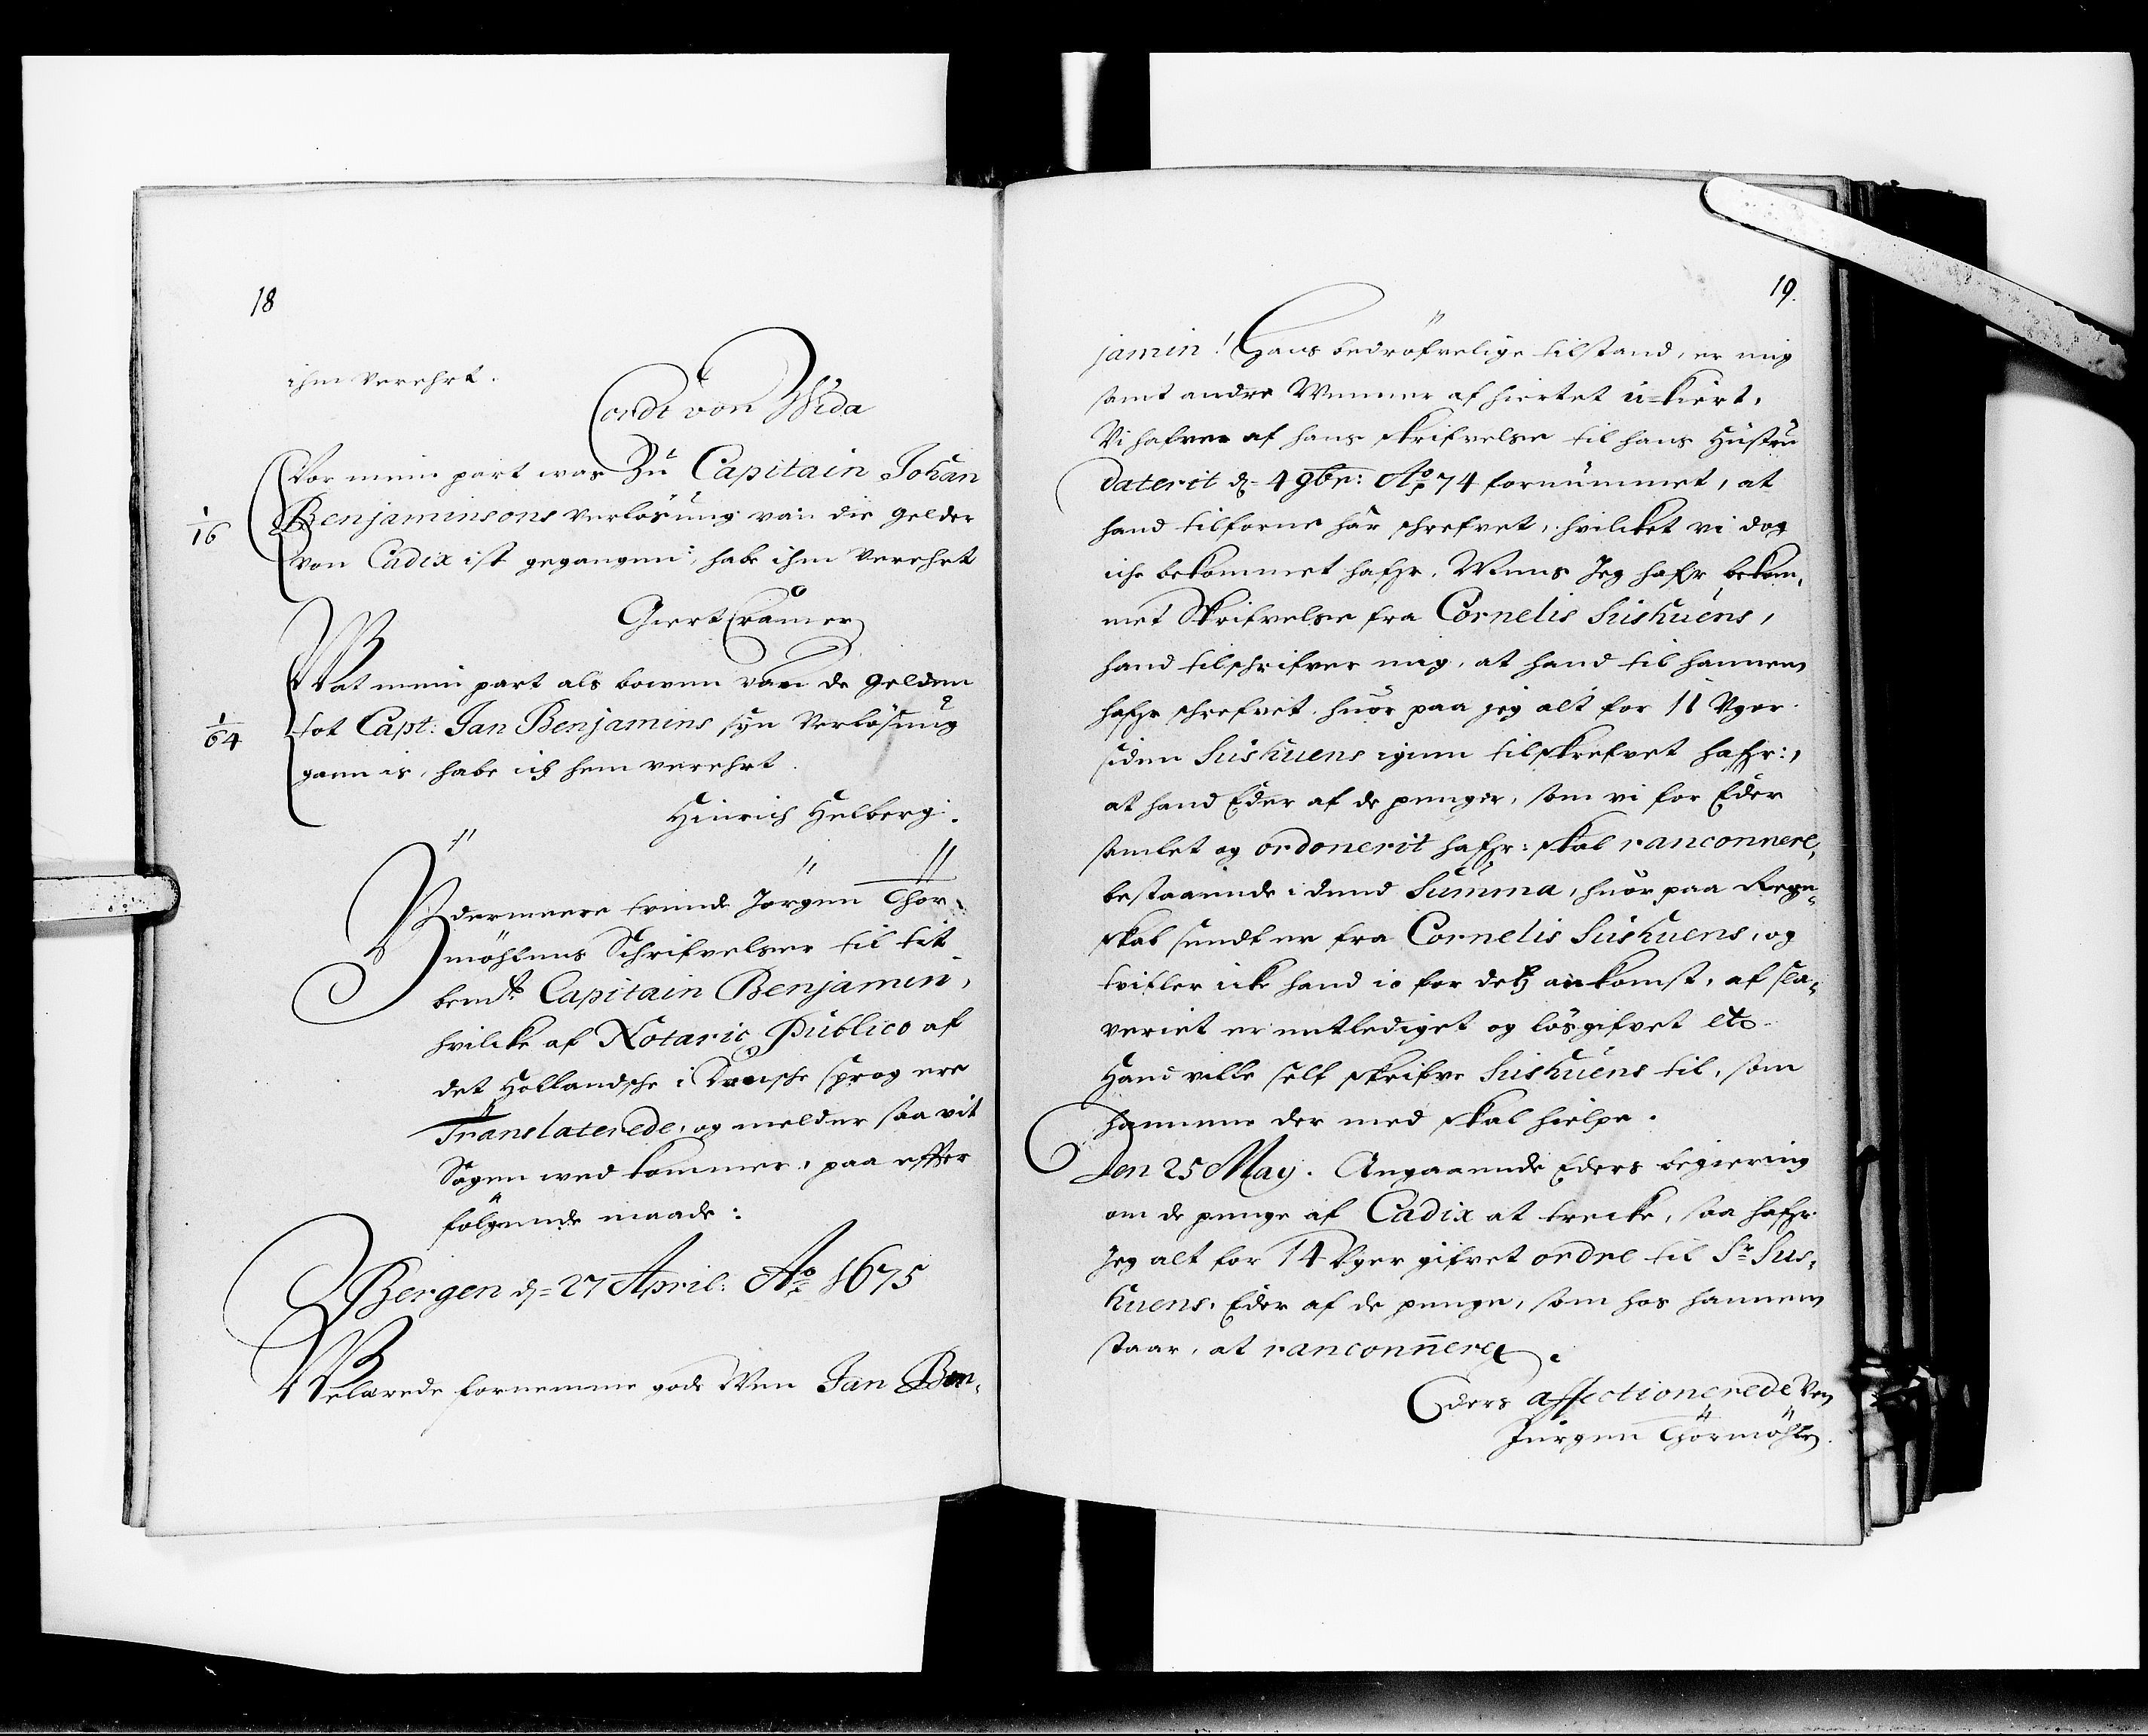 18
ihm verehrt.
Cordt von Wida
Vor mein part was Zu Capitain Johan
1/16 Benjaminsons verlösung van die gelder
von Cadix ist gegangen: habe ihm verehrt
Giert Cramer
Wat mein part als bowen van de gelden
1/64 tot Capt: Jan Benjamins syn Verlösung
gaen is, habe ich hem verehrt.
Hinrich Helberg.
Ydermeere tvende Jörgen Thor-
möhlens Schrifvelser til tit
bemdte Capitain Benjamin,
hvilcke af Notario Publico af
det Hollandsche i Dansche sprog ere
Translaterede, og melder saa vit
Sagen wed kommer, paa effter
fölgende maade:
Bergen d= 27 April: Ao 1675
Welærede fornemme gode Wen Jan Ben-
19.
jamin! Hans bedröfvelige tilstand, er mig
samt andre Wenner af hiertet u=kiert,
Vi hafver af hans skrifvelse til hans Hustru
daterit d= 4 9br: Ao 74 fornummet, at
hand tilforne har schrefvet, hvilcket vi dog
iche bekommet hafr. Mens Jeg hafr bekom-
met Skrifvelse fra Cornelis Suskuens,
hand tilschrifver mig, at hand til hannem
hafr schrefvet. huor paa jeg alt for 11 Uger
siden Suskuens igien tilskrefvet hafr:,
at hand Eder af de penger, som vi for Eder
samlet og ordonerit hafr: skal ranconnere,
bestaaende i dend Summa, huor paa Regn-
skab sendt er fra Cornelis Suskuens, og
tvifler icke hand io for detz ankomst, af sla-
veriet er entlediget og lösgifvet etc
Hand ville self skrifve Suskuens til, som
hannem der med skal hielpe.
Den 25 May. Angaaende Eders begiering
om de penge af Cadix at trecke, saa hafr
Jeg alt for 14 Uger gifvet ordre til Sr Sus-
kuens, Eder af de penge, som hos hannem
staar, at ranconnere.
Eders affectionerede Ven
Jürgen Thormöhlen.